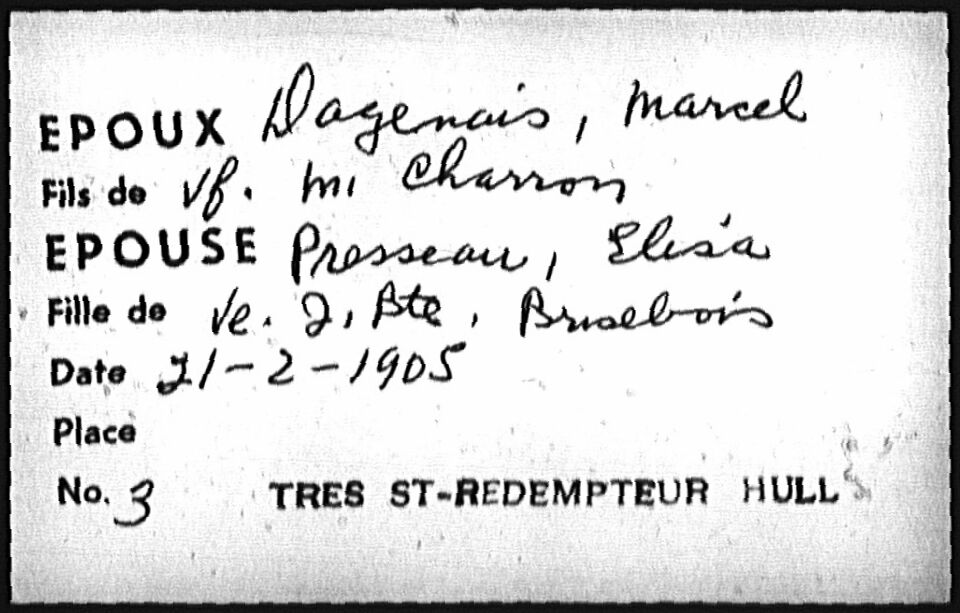 EPOUX Dagenais, Marcel
Fils de vf. M. Charron
EPOUSE Presseau, Elisa
Fille de Ve. J. Bte, Brisebois
Date 21-2-1905
Place
No. 3 TRES ST-REDEMPTEUR HULL